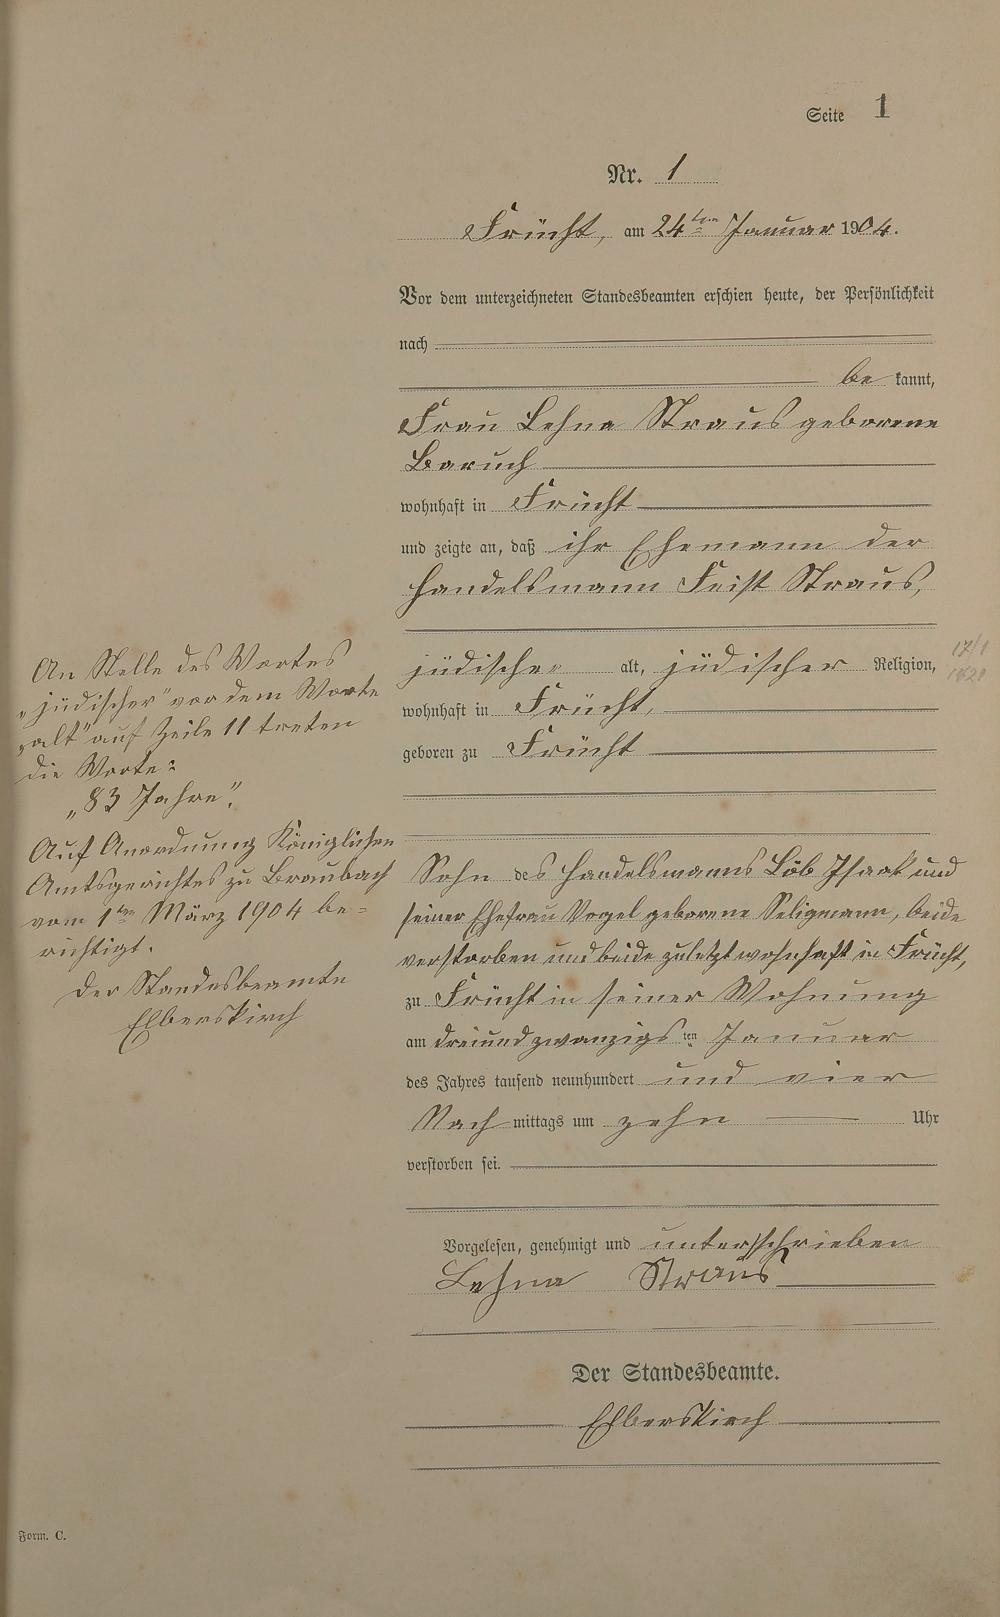 Seite 1
Nr. 1
Frücht, am 24ten Januar 1904.
Vor dem unterzeichneten Standesbeamten erschien heute, der Persönlichkeit
nach
be kannt,
Frau Lehna Straus geborene
Baruch
wohnhaft in Frücht
und zeigte an, daß ihr Ehemann der
Handelsmann Feist Straus,
jüdischer alt, jüdischer Religion,
wohnhaft in Frücht,
geboren zu Frücht
Sohn des Handelsmanns Löb Isaak und
seiner Ehefrau Vogel geborene Seligmann, beide
verstorben und beide zuletzt wohnhaft in Frücht,
zu Frücht in seiner Wohnung
am dreiundzwanzigsten Januar
des Jahres tausend neunhundert und vier
Nach mittags um zehn Uhr
verstorben sei.
Vorgelesen, genehmigt und unterschrieben
Lehna Straus
Der Standesbeamte.
Elberskirch
An Stelle des Wortes
„jüdischer" vor dem Worte
„alt" auf Zeile 11 treten
die Worte:
„83 Jahre".
Auf Anordnung Königlichen
Amtsgerichtes zu Braubach
vom 1ten März 1904 be=
richtigt.
Der Standesbeamte
Elberskirch
17/1
Form. C.